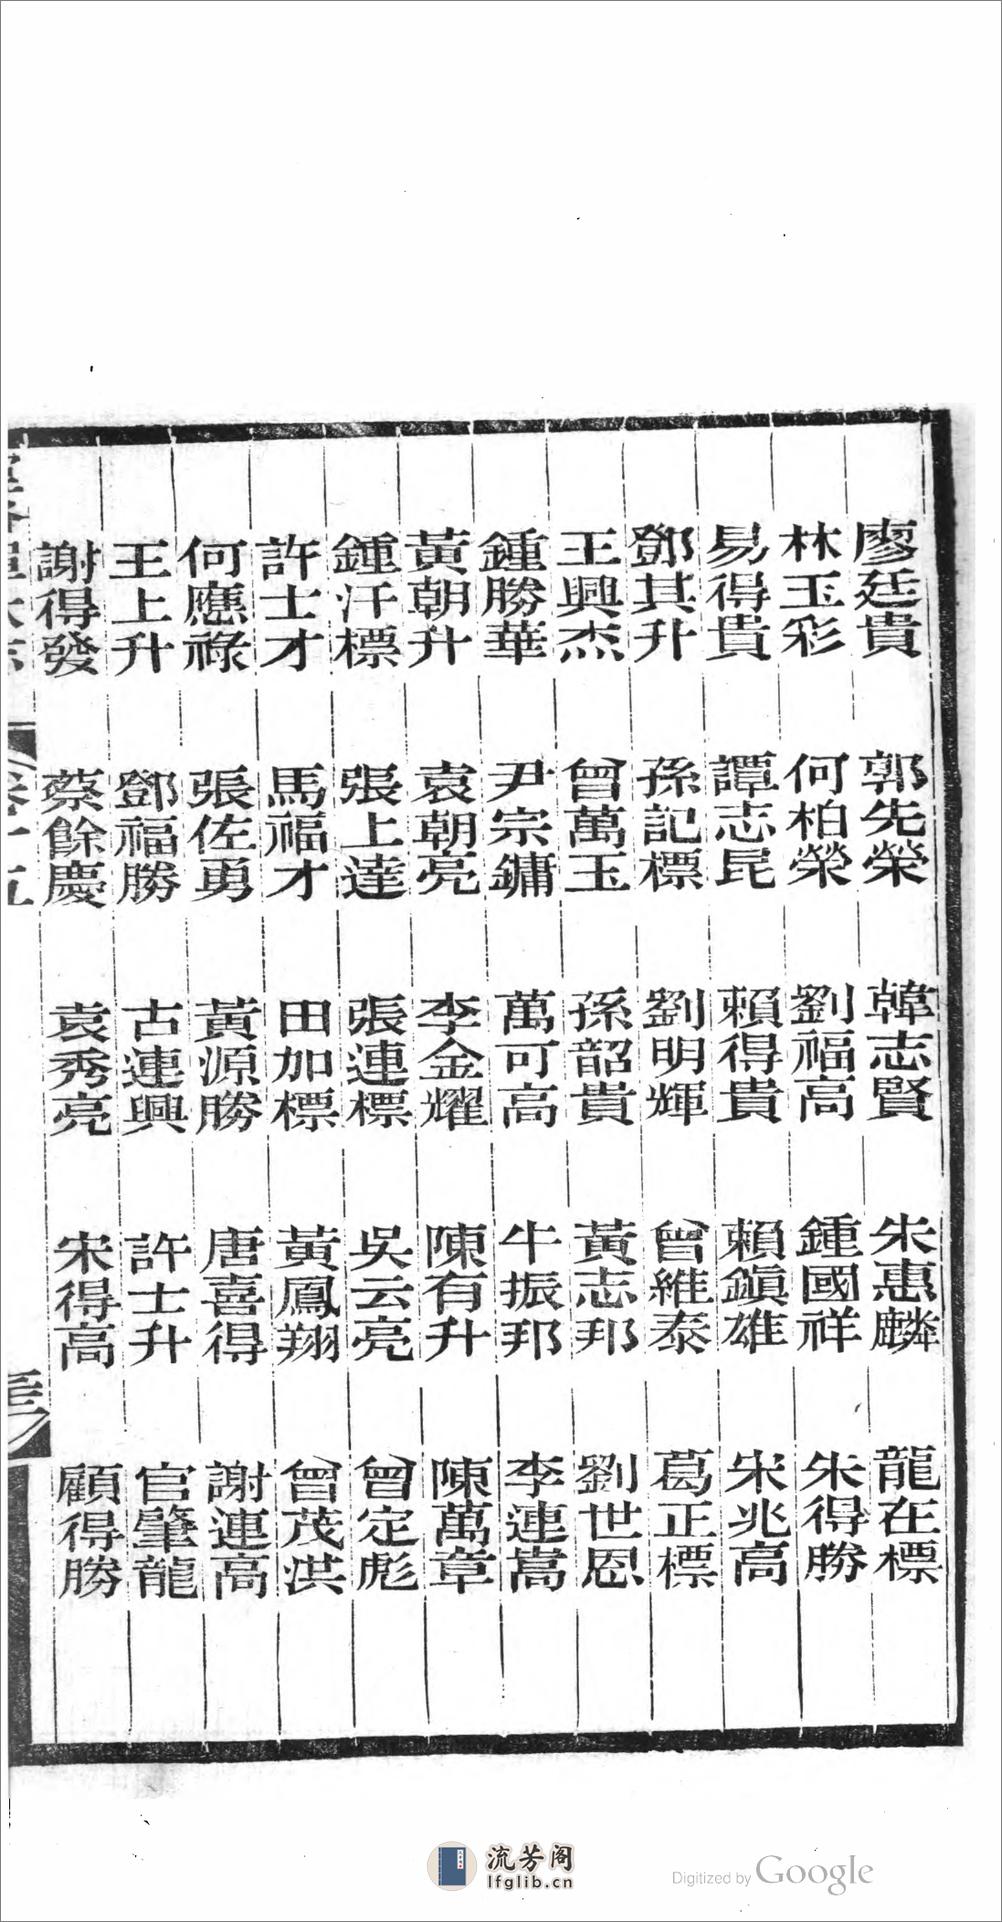 廖廷貴 郭先榮 韓志賢 朱惠麟 龍在標
林玉彩 何柏榮 劉福高 鍾國祥 朱得勝
易得貴 譚志昆 賴得貴 賴鎭雄 宋兆高
鄧其升 孫記標 劉明輝 曾維泰 葛正標
王興杰 曾萬玉 孫韶貴 黃志邦 劉世恩
鍾勝華 尹宗鏞 萬可高 牛振邦 李連嵩
黃朝升 袁朝亮 李金耀 陳有升 陳萬章
鍾汗標 張上達 張連標 吳云亮 曾定彪
許士才 馬福才 田加標 黃鳳翔 曾茂洪
何應祿 張佐勇 黃源勝 唐喜得 謝連高
王上升 鄧福勝 古連興 許士升 官肇龍
謝得發 蔡餘慶 袁秀亮 宋得高 顧得勝
卷十五
流芳阁
lfglib.cn
Digitized by Google